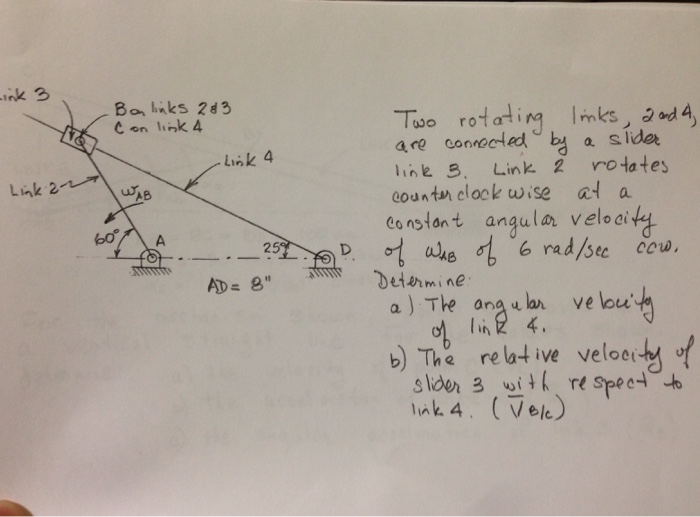 Link 3
B on links 2 & 3
C on link 4
Link 4
Link 2
ωAB
60°
A
25°
D
AD = 8"
Two rotating links, 2 and 4,
are connected by a slider
link 3. Link 2 rotates
counter clockwise at a
constant angular velocity
of ωAB of 6 rad/sec ccw.
Determine:
a) The angular velocity
of link 4.
b) The relative velocity of
slider 3 with respect to
link 4. (V̄B/C)